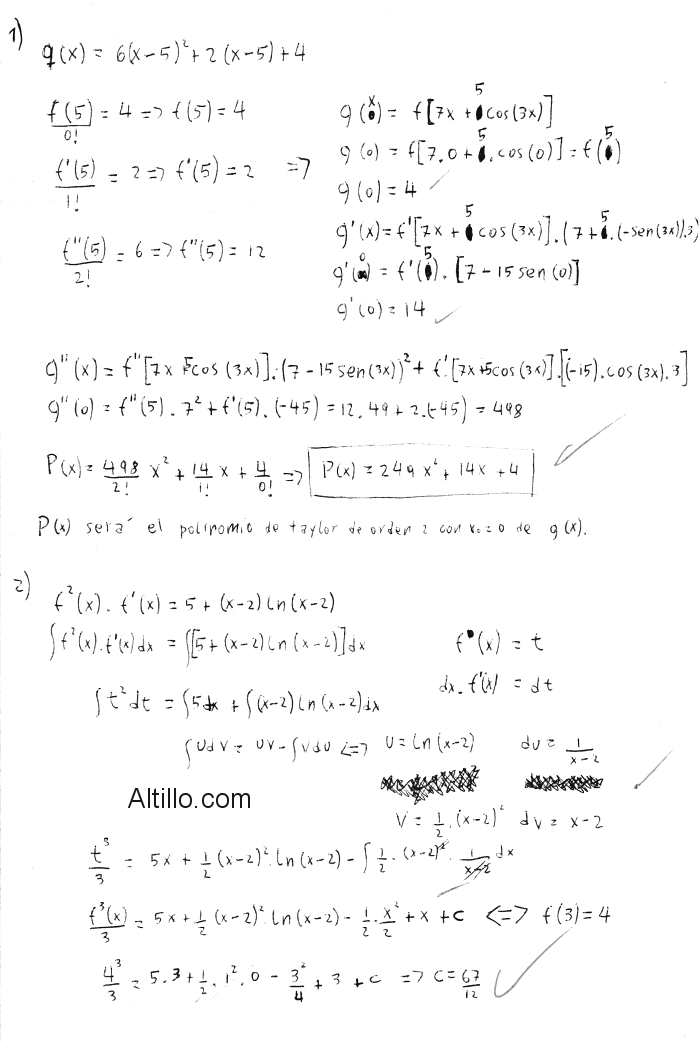 1)
q(x) = 6(x-5)²+2(x-5)+4
f(5)/0! = 4 => f(5) = 4
f'(5)/1! = 2 => f'(5) = 2 =>
f''(5)/2! = 6 => f''(5) = 12
g(x) = f[7x + 5cos(3x)]
g(0) = f[7.0 + 5.cos(0)] = f(5)
g(0) = 4
g'(x) = f'[7x + 5cos(3x)].(7+5.(-sen(3x)).3)
g'(0) = f'(5).[7-15sen(0)]
g'(0) = 14
g''(x) = f''[7x 5cos(3x)].(7-15sen(3x))² + f'[7x+5cos(3x)].[(-15).cos(3x).3]
g''(0) = f''(5).7²+f'(5).(-45) = 12.49+2.(-45) = 498
P(x) = 498/2! x² + 14/1! x + 4/0! => P(x) = 249x²+14x+4
P(x) será el polinomio de taylor de orden 2 con x₀=0 de g(x).
2)
f²(x).f'(x) = 5+(x-2)Ln(x-2)
∫f²(x).f'(x)dx = ∫[5+(x-2)Ln(x-2)]dx f(x) = t
∫t²dt = ∫5dx + ∫(x-2)Ln(x-2)dx dx.f'(x) = dt
∫UdV = UV-∫VdU <=> U = Ln(x-2) dU = 1/(x-2)
Altillo.com
V = 1/2.(x-2)² dV = x-2
t³/3 = 5x+1/2(x-2)².Ln(x-2)-∫1/2.(x-2)².1/(x-2) dx
f³(x)/3 = 5x+1/2(x-2)².Ln(x-2)-1/2.x²/2+x+C <=> f(3)=4
4³/3 = 5.3+1/2.1².0-3²/4+3+C => C=67/12